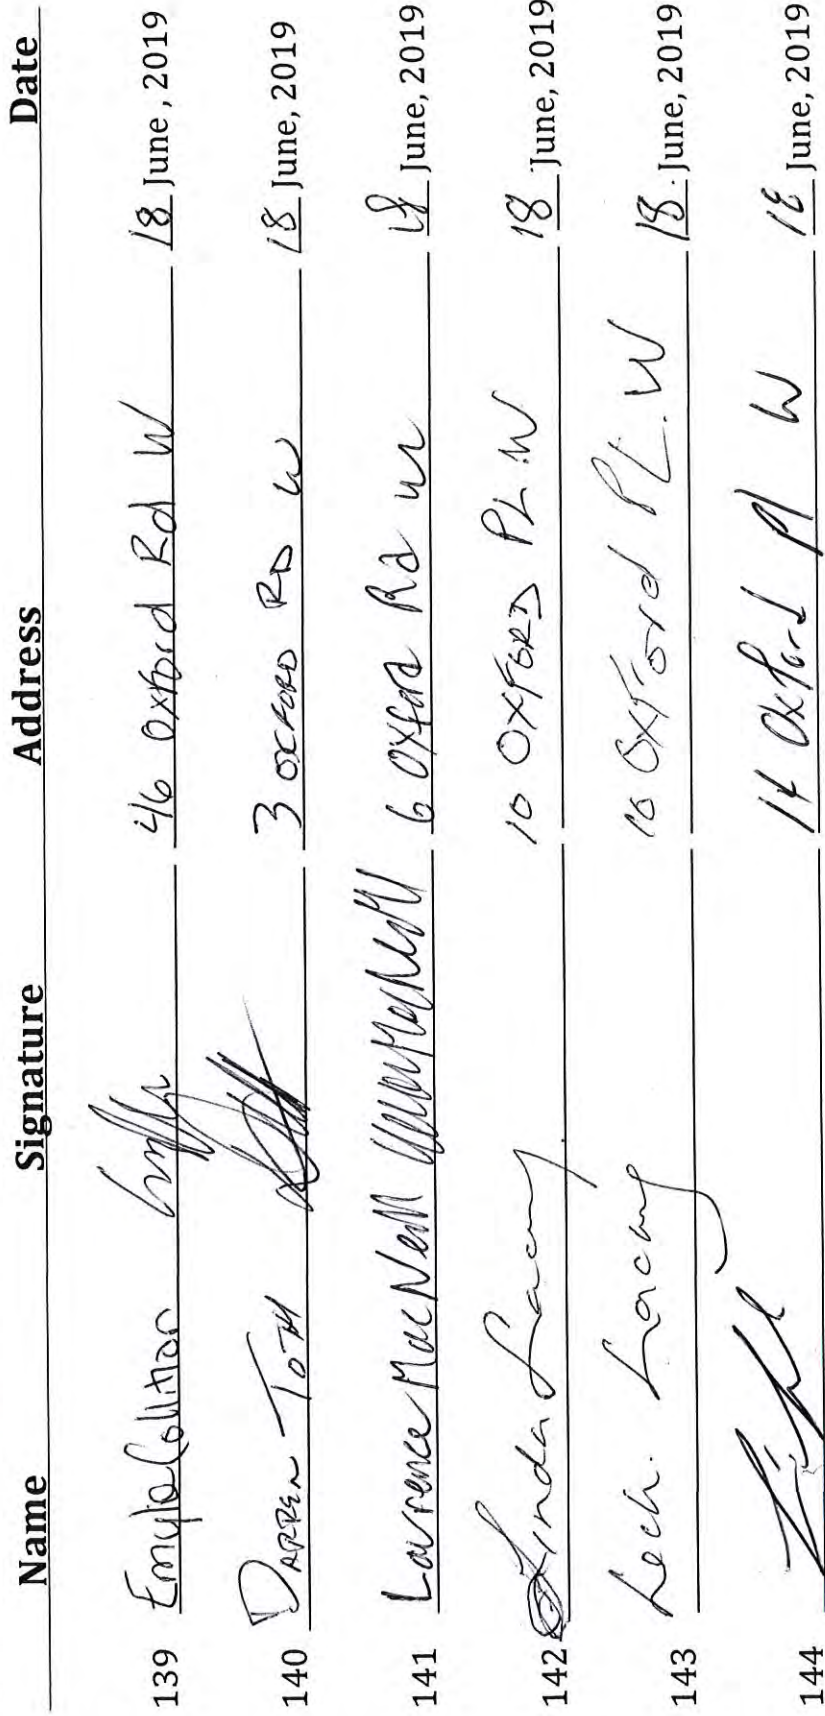 Name Signature Address Date
139 Emyle Collitton 46 Oxford Rd W 18 June, 2019
140 DARREN TOTH 3 OXFORD RD W 18 June, 2019
141 Lawrence MacNeill 6 Oxford Rd W 18 June, 2019
142 Linda Lacny 10 OXFORD PL. W 18 June, 2019
143 Lech. Lacny 10 Oxford PL. W 18 June, 2019
144 14 Oxford Pl W 18 June, 2019